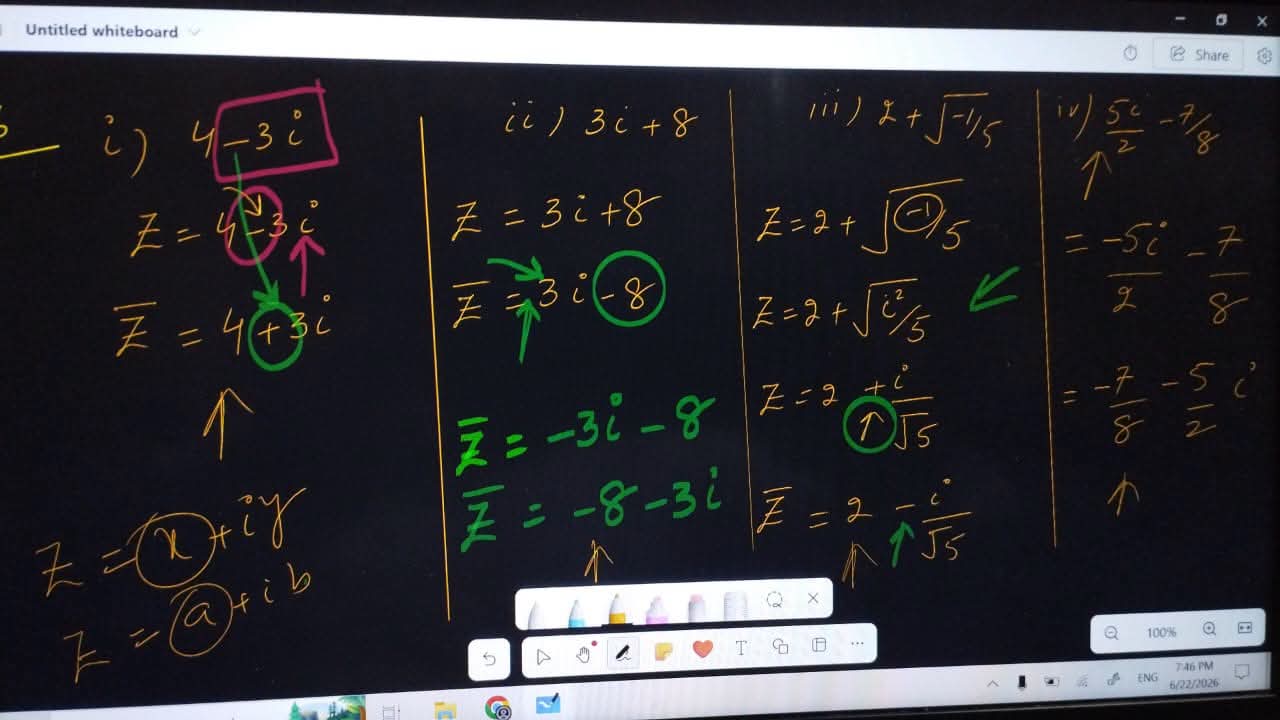 Untitled whiteboard
Share
i) 4 - 3i
Z = 4 - 3i
Z̅ = 4 + 3i
Z = x + iy
Z = a + ib
ii) 3i + 8
Z = 3i + 8
Z̅ = 3i - 8
Z̅ = -3i - 8
Z̅ = -8 - 3i
iii) 2 + √-1/5
Z = 2 + √-1/5
Z = 2 + √i²/5
Z = 2 + i/√5
Z̅ = 2 - i/√5
iv) 5i/2 - 7/8
= -5i/2 - 7/8
= -7/8 - 5/2 i
T
100%
ENG
7:46 PM
6/22/2026